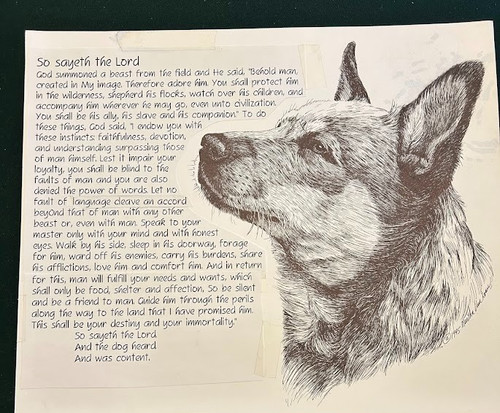 So sayeth the Lord
God summoned a beast from the field and He said, "Behold man,
created in My image. Therefore adore him. You shall protect him
in the wilderness, shepherd his flocks, watch over his children, and
accompany him wherever he may go, even unto civilization.
You shall be his ally, his slave and his companion." To do
these things, God said, "I endow you with
these instincts: faithfulness, devotion,
and understanding surpassing those
of man himself. Lest it impair your
loyalty, you shall be blind to the
faults of man and you are also
denied the power of words. Let no
fault of language cleave an accord
beyond that of man with any other
beast or, even with man. Speak to your
master only with your mind and with honest
eyes. Walk by his side, sleep in his doorway, forage
for him, ward off his enemies, carry his burdens, share
his afflictions, love him and comfort him. And in return
for this, man will fulfill your needs and wants, which
shall only be food, shelter and affection, So be silent
and be a friend to man. Guide him through the perils
along the way to the land that I have promised him.
This shall be your destiny and your immortality."
So sayeth the Lord
And the dog heard
And was content.